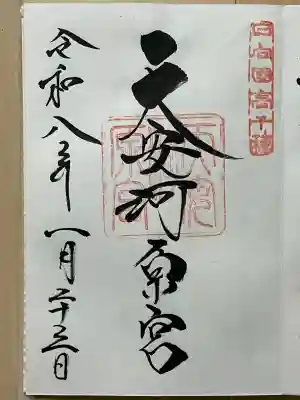 日向國高千穂
天安河原宮
令和八年一月二十三日